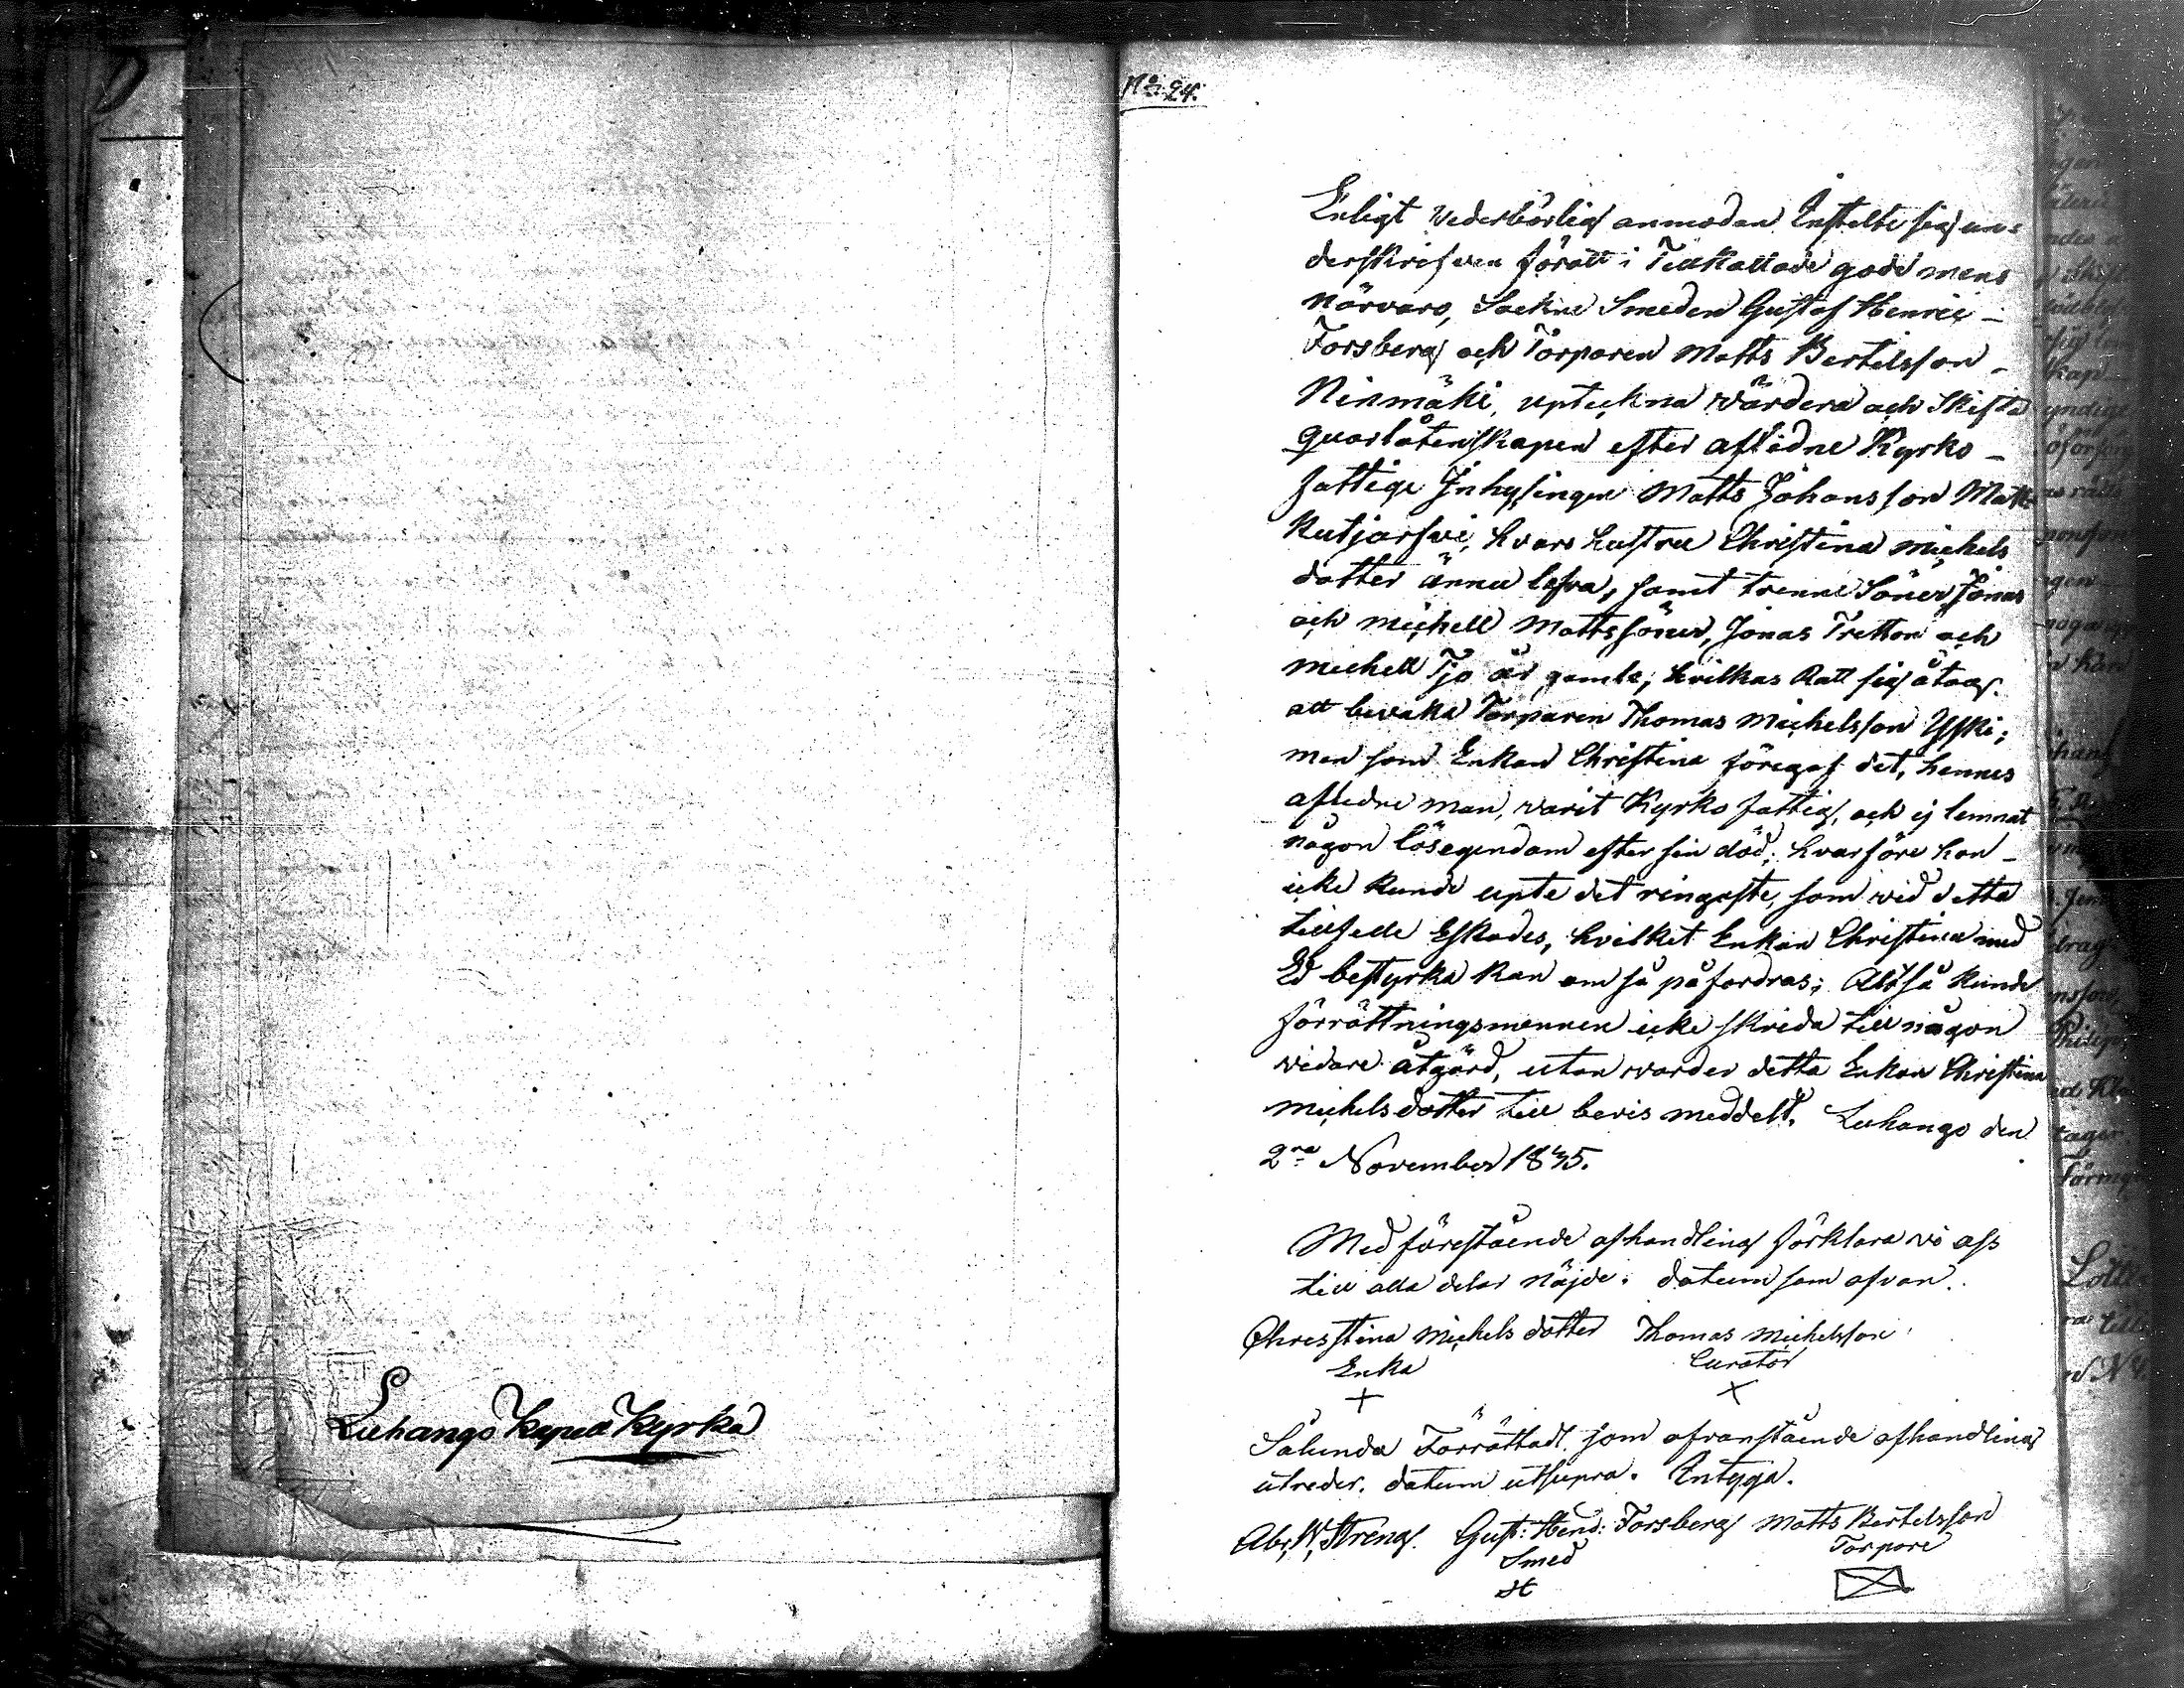 Luhango Kapell Kyrka
No 24.
Enligt vederbörlig anmodan Instelte sig un=
derskrifven föratt i Tillkallade gode mens
närvaro, Sockne Smeden Gustaf Henric –
Forsberg och Torparen Matts Bertelsson –
Ninmäki, upteckna värdera och Skifta
quarlåtenskapen efter aflidne Kyrko –
fattige Inhysingen Matts Johansson
Kutjärfvi, hvars hustru Christina michels
dotter ännu lefva, samt trenne Söner Jonas
och michell Mattssöner, Jonas Tretton och
michell Tjo år gamle, hvilkas Rätt sig åtog
att bevaka Torparen Thomas Michelsson Yski;
men som Enkan Christina föregaf det, hennes
aflidne man, varit Kyrko fattig, och ej lemnat
någon lösegendom efter sin död; hvarföre hon –
icke kunde upte det ringaste, som vid detta
tillfelle Eskades, hvilket Enkan Christina med
Ed bestyrka kan om så påfordras; Altså kunde
förrättningsmennen icke skrida till någon
vidare åtgärd, utan varder detta Enkan Christina
michelsdotter till bevis meddelt. Luhango den
2ra November 1845.
Med förestående afhandling förklara vi oss
till alla delar nöjde; datum som ofvan.
Christina Michels dotter Thomas Michelsson
Enka Curator
Sålunda Förrättadt, som ofvanstående afhandling
utreder, datum utsupra. Intyga.
Abr. W. Streng. Gust: Hend: Forsberg Matts Bertelsson
Smed Torpare